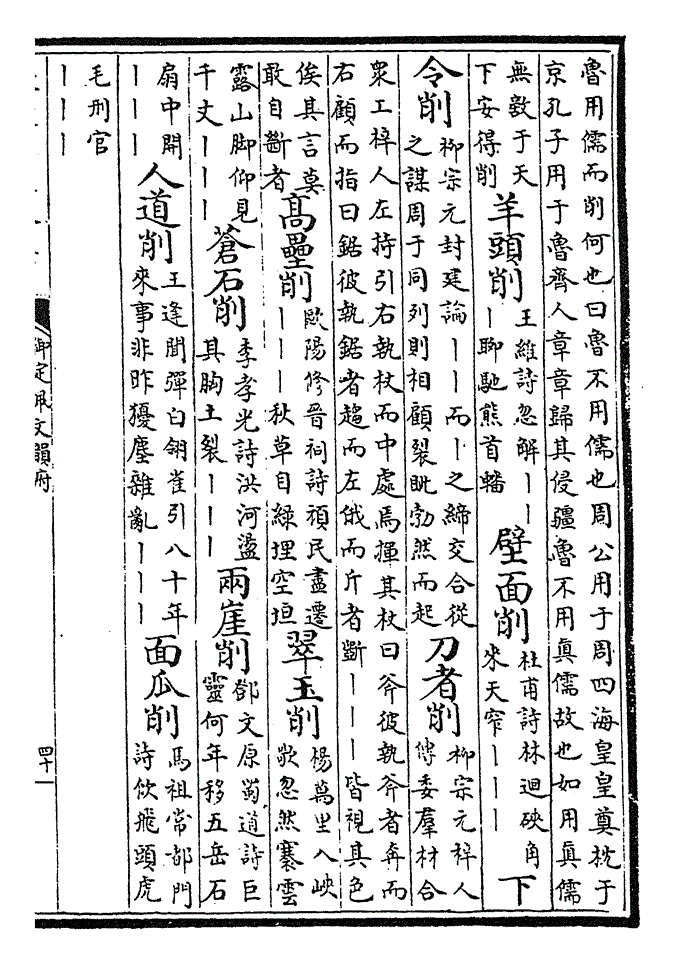 魯用儒而削何也曰魯不用儒也周公用于周四海皇皇奠枕于
京孔子用于魯齊人章章歸其侵疆魯不用真儒故也如用真儒
無敵于天
下安得削
羊頭削
王維詩忽解丨丨
丨聊馳熊首轓
壁面削
杜甫詩林迴硤角
来天窄丨丨丨
下
令削
柳宗元封建論丨丨而丨之締交合從
之謀周于同列則相顧裂眦勃然而起
刀者削
柳宗元梓人
傳委羣材合
衆工梓人左持引右執杖而中處焉揮其杖曰斧彼執斧者奔而
右顧而指曰鋸彼執鋸者趨而左俄而斤者斵丨丨丨皆視其色
俟其言莫
敢自斷者
高壘削
歐陽修晋祠詩頑民盡遷
丨丨丨秋草自綠埋空垣
翠玉削
楊萬里入峽
歌忽然褰雲
露山脚仰見
千丈丨丨丨
蒼石削
李孝光詩洪河盪
其胸土裂丨丨丨
兩崖削
鄧文原蜀道詩巨
靈何年移五岳石
扇中開
丨丨丨
人道削
王逢聞彈白翎雀引八十年
來事非昨擾塵雜亂丨丨丨
面瓜削
馬祖常都門
詩飲飛頭虎
毛刑官
丨丨丨
御定佩文韻府
四十一